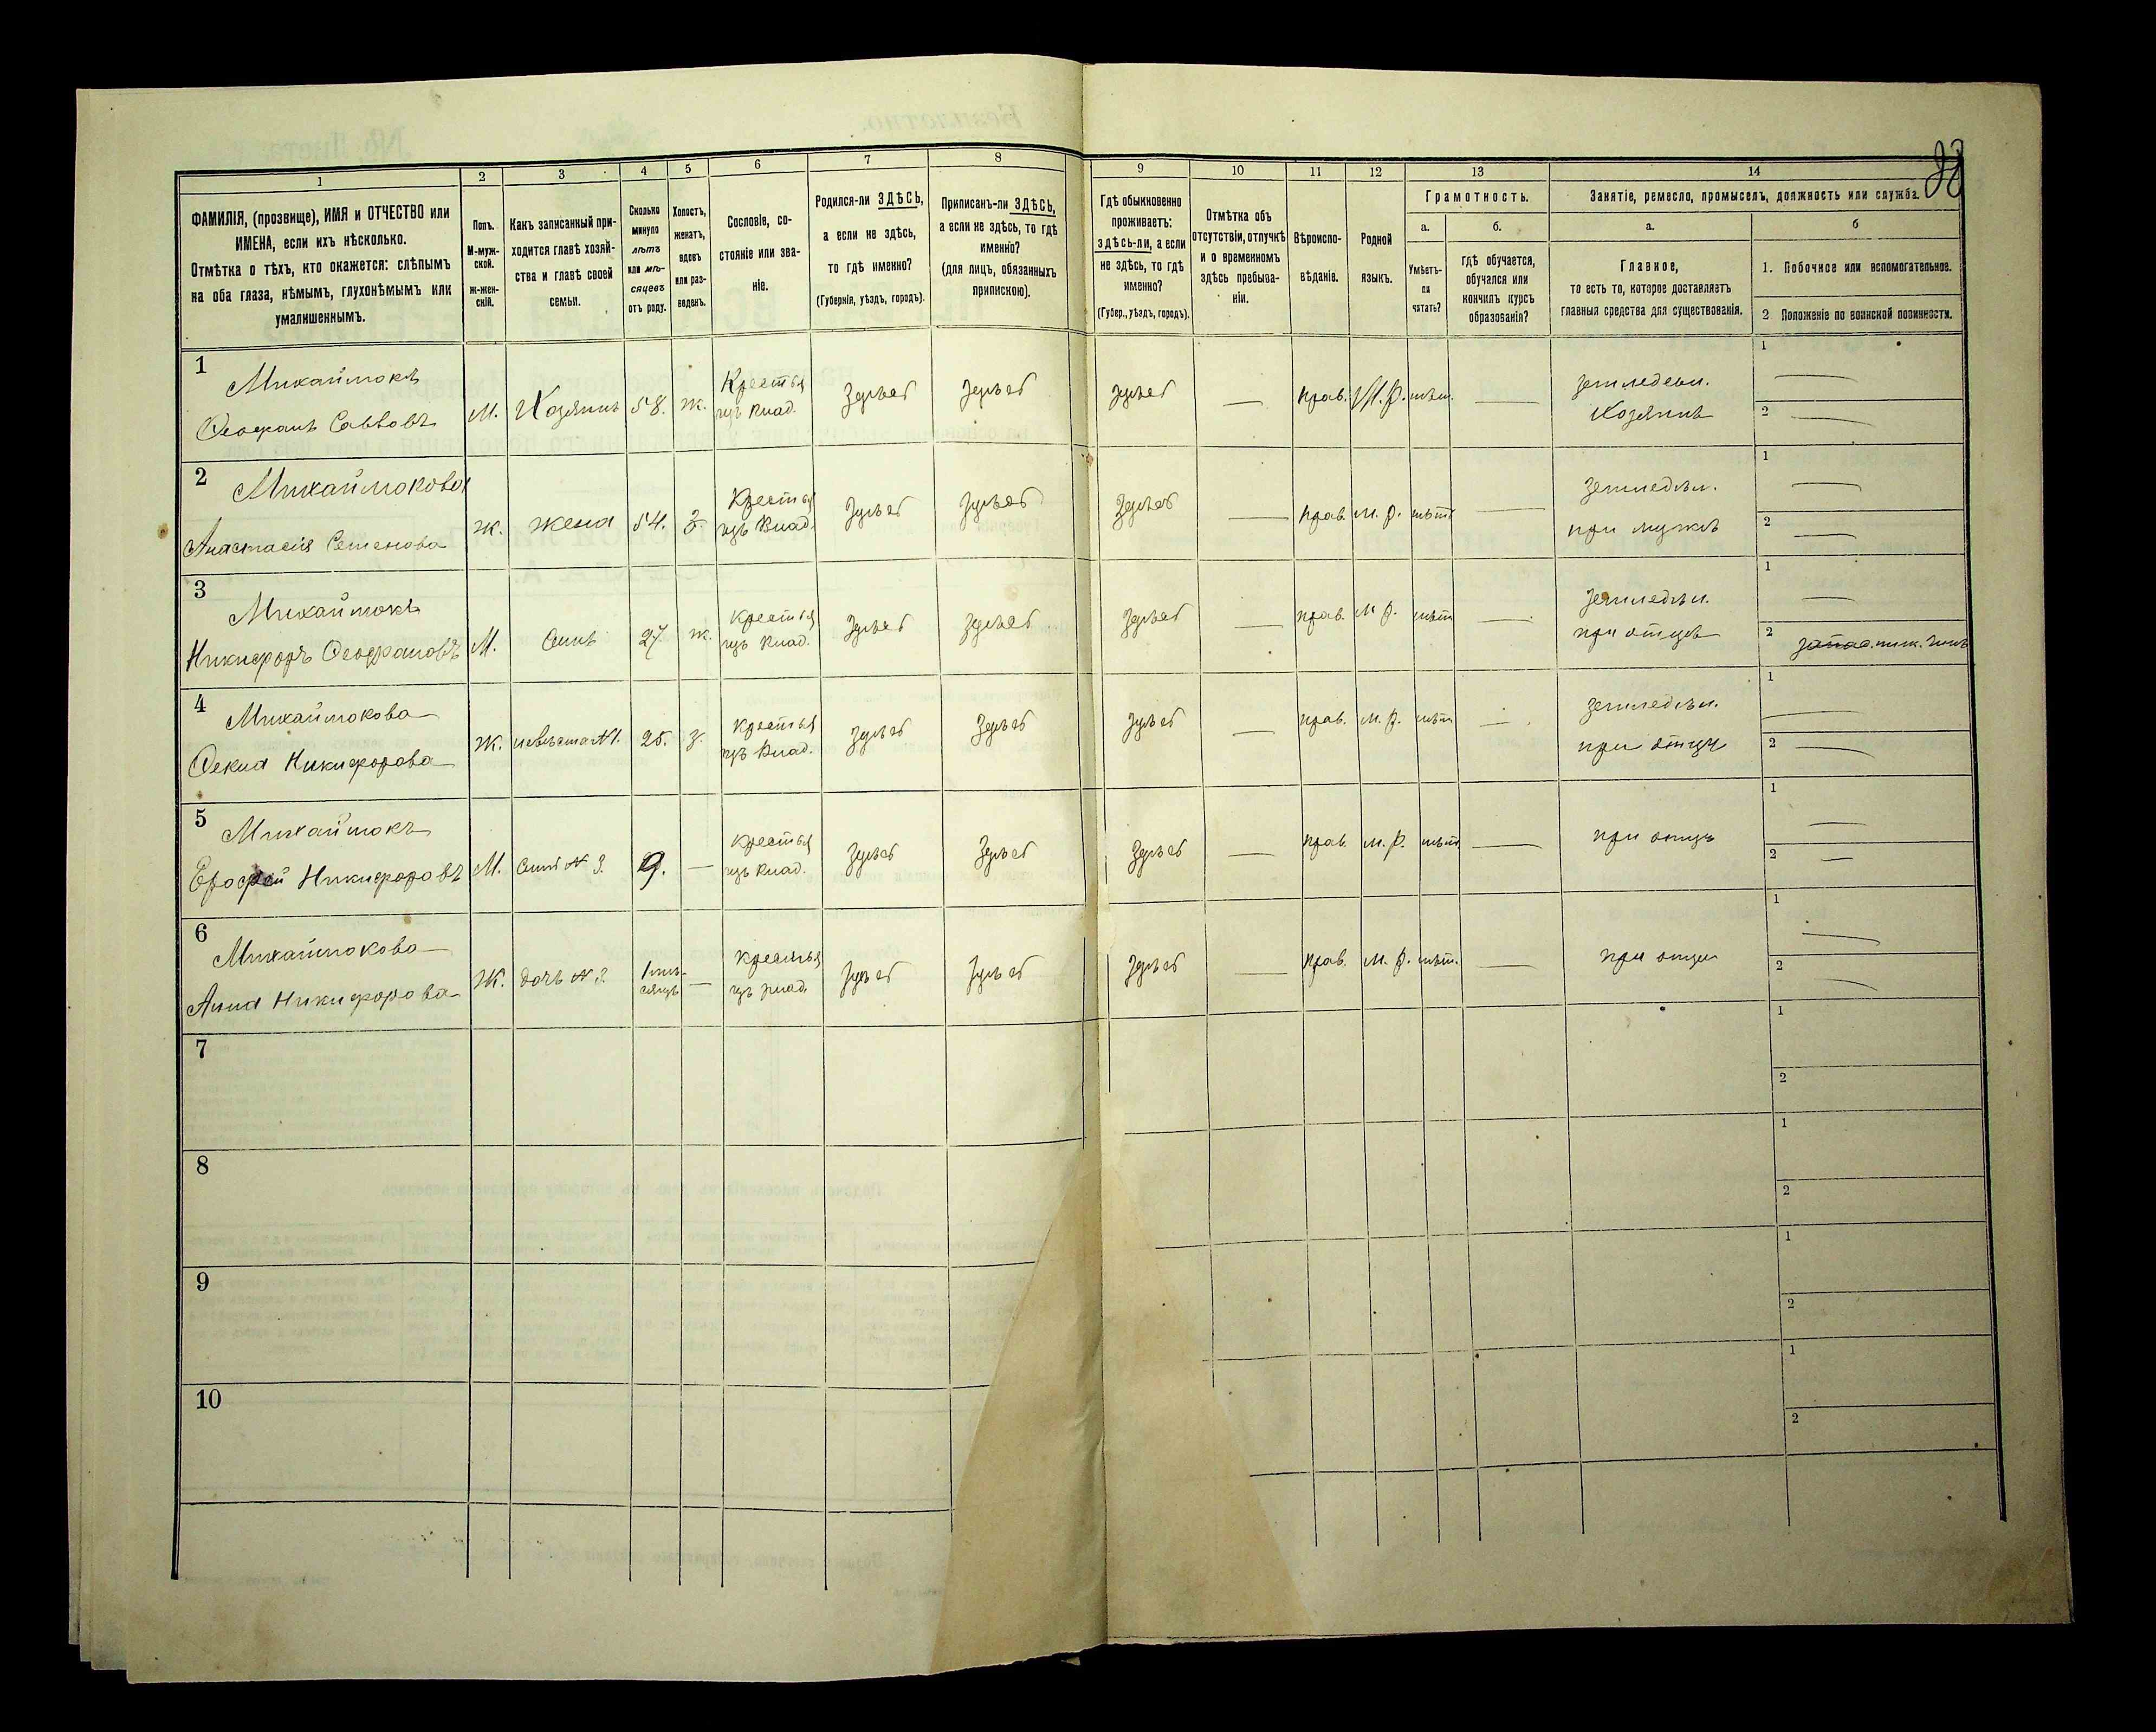 38
1 2 3 4 5 6 7 8 9 10 11 12 13 14
ФАМИЛІЯ, (прозвище), ИМЯ и ОТЧЕСТВО или
ИМЕНА, если ихъ нѣсколько.
Отмѣтка о тѣхъ, кто окажется: слѣпымъ
на оба глаза, нѣмымъ, глухонѣмымъ или
умалишеннымъ.
Полъ.
М-муж-
ской.
ж-жен-
скій.
Какъ записанный при-
ходится главѣ хозяй-
ства и главѣ своей
семьи.
Сколько
минуло
лѣтъ
или мѣ-
сяцевъ
отъ роду.
Холостъ,
женатъ,
вдовъ
или раз-
веденъ.
Сословіе, со-
стояніе или зва-
ніе.
Родился-ли ЗДѢСЬ,
а если не здѣсь,
то гдѣ именно?
(Губернія, уѣздъ, городъ).
Приписанъ-ли ЗДѢСЬ,
а если не здѣсь, то гдѣ
именно?
(для лицъ, обязанныхъ
припискою).
Гдѣ обыкновенно
проживаетъ:
здѣсь-ли, а если
не здѣсь, то гдѣ
именно?
(Губер., уѣздъ, городъ).
Отмѣтка объ
отсутствіи, отлучкѣ
и о временномъ
здѣсь пребыва-
ніи.
Вѣроиспо-
вѣданіе.
Родной
языкъ.
Грамотность.
а.
Умѣетъ-
ли
читать?
б.
гдѣ обучается,
обучался или
кончилъ курсъ
образованія?
Занятіе, ремесло, промыселъ, должность или служба.
а.
Главное,
то есть то, которое доставляетъ
главныя средства для существованія.
б
1. Побочное или вспомогательное.
2 Положеніе по воинской повинности.
1
Михаймокъ
Феофанъ Саввовъ
М.
Хозяинъ
58.
ж.
Крестья
изъ влад.
Здѣсь
Здѣсь
Здѣсь
—
прав.
М. Р.
нѣт.
—
земледѣл.
Хозяинъ
1 —
2 —
2
Михаймокова
Анастасія Семенова
Ж.
жена
54.
З.
Крестья
изъ влад.
Здѣсь
Здѣсь
Здѣсь
—
прав.
м. р.
нѣт
—
земледѣл.
при мужѣ
1 —
2 —
3
Михаймокъ
Никифоръ Феофановъ
М.
Сынъ
27.
ж.
Крестья
изъ влад.
Здѣсь
Здѣсь
Здѣсь
—
прав.
м р.
нѣт
—
земледѣл.
при отцѣ
1 —
2 запас. ниж. чинъ
4
Михаймокова
Фекла Никифорова
Ж.
невѣста N 1.
25.
з.
Крестья
изъ влад.
Здѣсь
Здѣсь
Здѣсь
—
прав.
м. р.
нѣт
—
земледѣл.
при отцѣ
1 —
2 —
5
Михаймокъ
Ерофей Никифоровъ
М.
Сынъ N 3.
9.
—
Крестья
изъ влад.
Здѣсь
Здѣсь
Здѣсь
—
прав.
м. р.
нѣт
—
при отцѣ
1 —
2 —
6
Михаймокова
Анна Никифорова
Ж.
дочь N 3.
1 мѣ-
сяцъ
—
Крестья
изъ влад.
Здѣсь
Здѣсь
Здѣсь
—
прав.
м. р.
нѣт.
—
при отцѣ
1 —
2 —
7
1
2
8
1
2
9
1
2
10
1
2